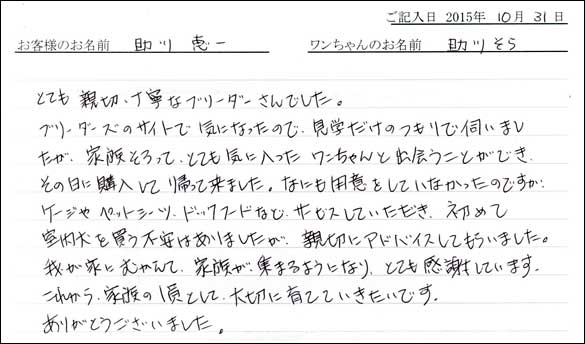 ご記入日 2015年 10月 31日
お客様のお名前 助川 恵一 ワンちゃんのお名前 助川そら
とても 親切、丁寧なブリーダーさんでした。
ブリーダーズのサイトで 気になったので、見学だけのつもりで伺いまし
たが、家族そろって、とても気に入った ワンちゃんと出会うことができ、
その日に購入して 帰って来ました。なにも用意をしていなかったのですが、
ゲージや ペットシーツ、ドックフードなど、サービスしていただき、初めて
室内犬を買う不安はありましたが、親切にアドバイスしてもらいました。
我が家にむかえて、家族が集まるようになり、とても感謝しています。
これから、家族の1員として、大切に育てていきたいです。
ありがとうございました。